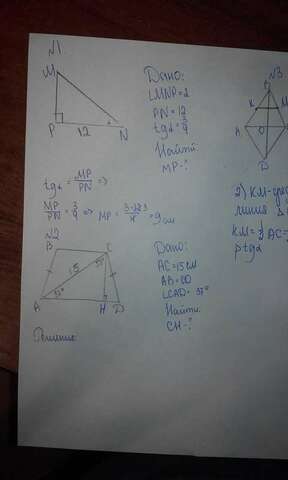 №1
M
P
12
N
Дано:
∠MNP=α
PN=12
tgα=3/4
Найти
MP-?
tgα = MP/PN =>
MP/PN = 3/4 => MP = 3·12³/4 = 9 см
№2
B
C
15
37°
A
37°
H
D
Дано:
AC=15см
AB=CD
∠CAD= 37°
Найти:
CH-?
Решение
№3
K
M
A
O
D
2) KM-сред
линия Δ
KM=½AC=